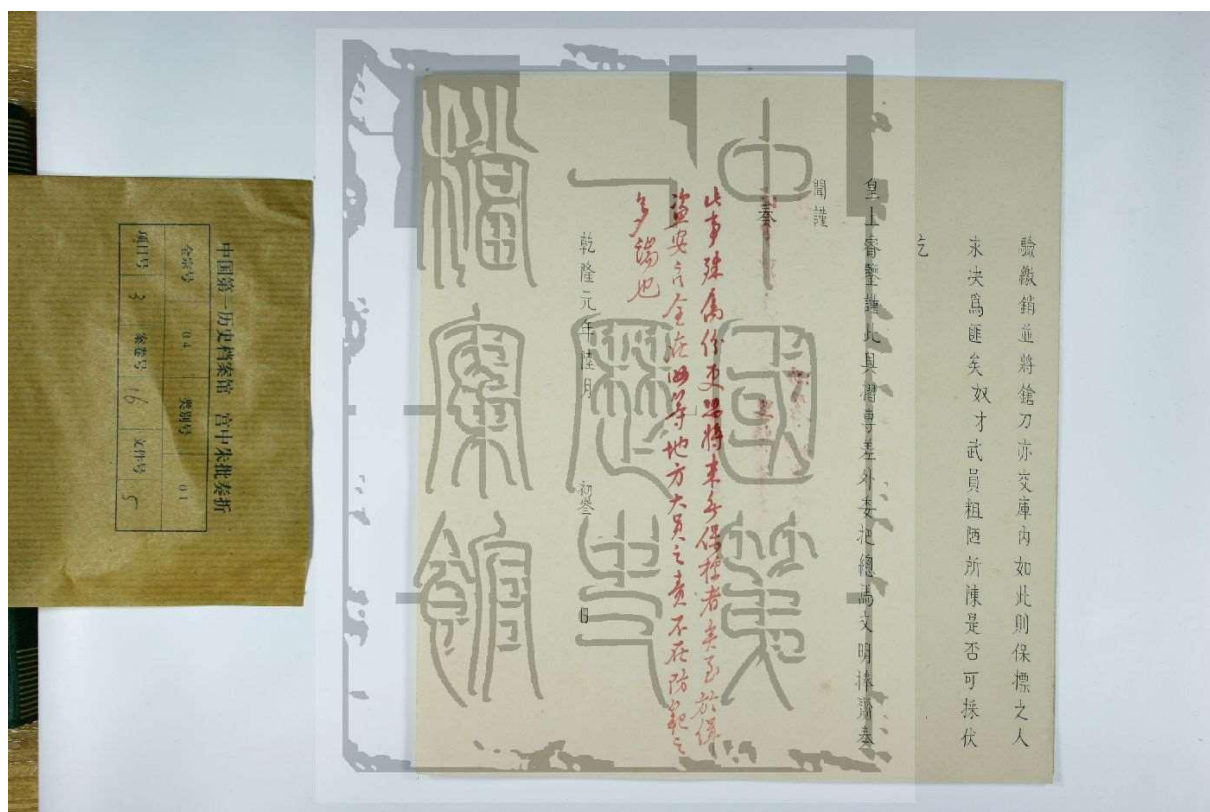 驗繳銷並將鎗刀亦交庫內如此則保標之人
永決爲匪矣奴才武員粗陋所陳是否可採伏
乞
皇上睿鑒謹此具摺專差外委把總馮文明捧齎奏
聞謹
奏
此事殊屬份更恐將來無保標者矣至於保
盜安言全在汝等地方大員之責不在防範之
多端也
乾隆元年陸月 初叁 日
中国第一历史档案馆 宫中朱批奏折
全宗号 04 类别号 01
项目号 3 案卷号 16 文件号 5
中國第一歷史檔案館